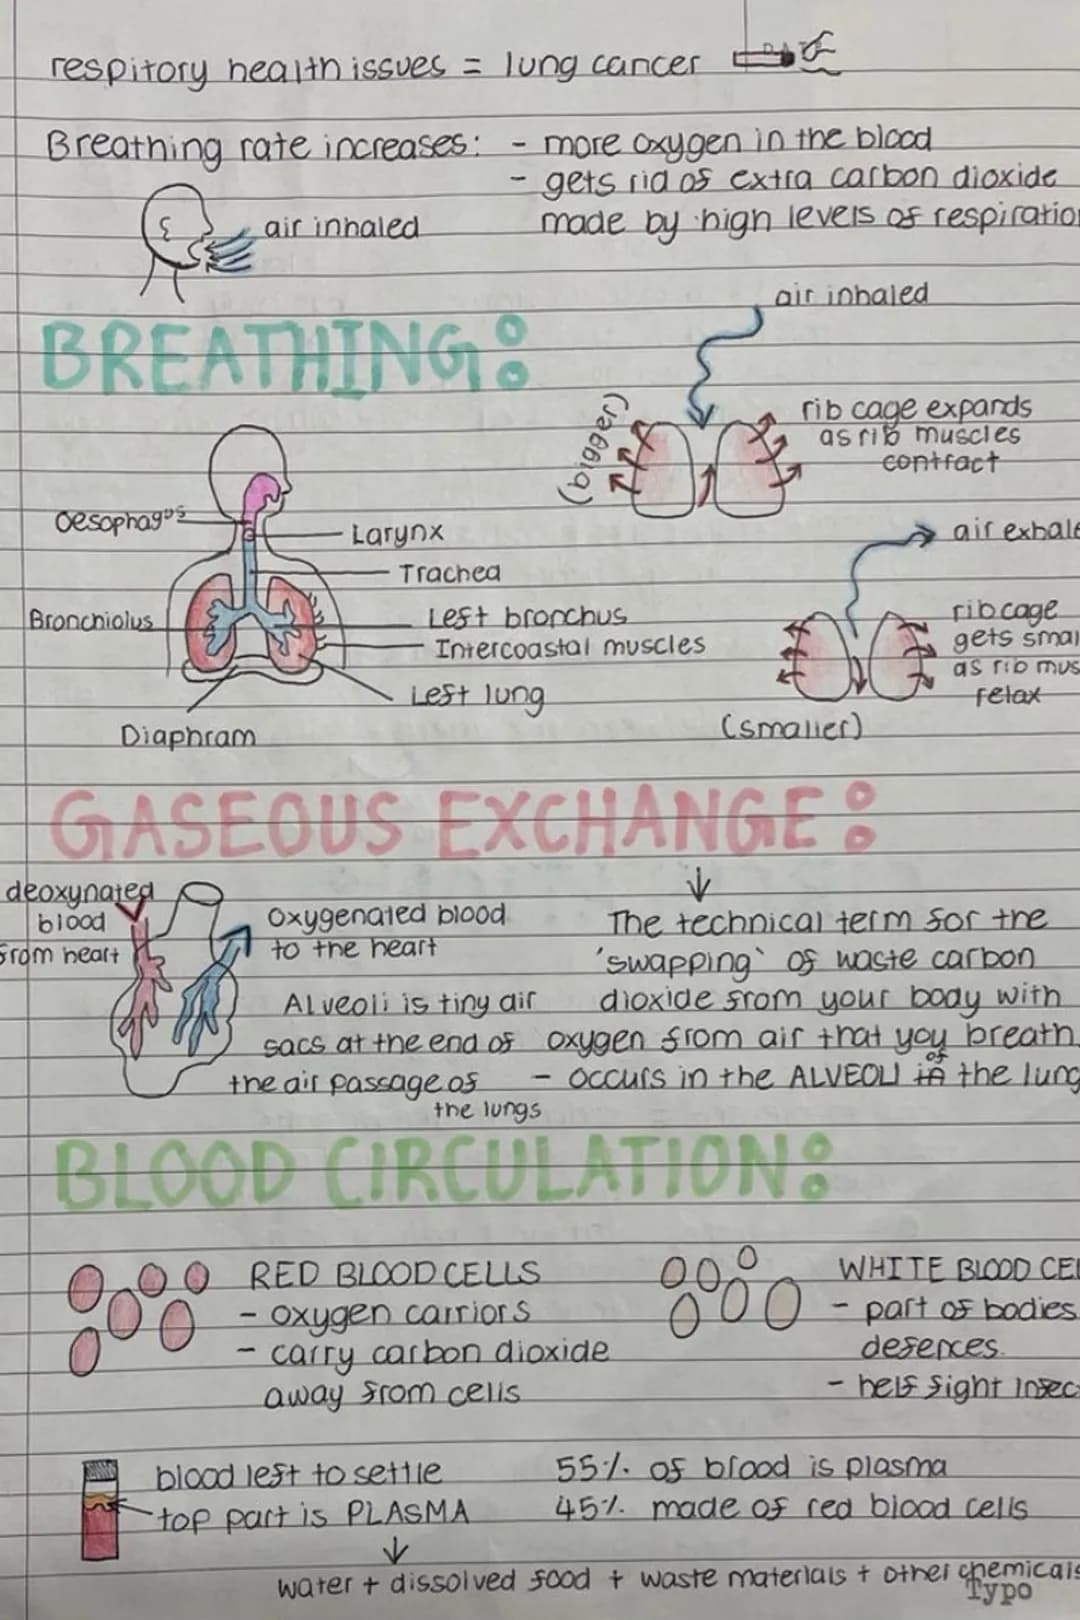 respitory health issues = lung cancer
Breathing rate increases: - more oxygen in the blood
- gets rid of extra carbon dioxide
made by high levels of respiratio
air inhaled
air inhaled
BREATHING:
(bigger)
rib cage expands
as rib muscles
contract
Oesophagus
Larynx
Trachea
Bronchiolus
Left bronchus
Intercoastal muscles
Left lung
Diaphram
air exhale
rib cage
gets smal
as rib mus
relax
(smaller)
GASEOUS EXCHANGE:
deoxynated
blood
from heart
Oxygenated blood
to the heart
Alveoli is tiny air
sacs at the end of
the air passage of
the lungs
The technical term for the
'swapping' of waste carbon
dioxide from your body with
oxygen from air that you breath
- occurs in the ALVEOLI of the lung
BLOOD CIRCULATION:
RED BLOOD CELLS
- oxygen carriors
- carry carbon dioxide
away from cells
WHITE BLOOD CEL
- part of bodies
defences.
- helf fight Infec
blood left to settle
top part is PLASMA
55% of blood is plasma
45% made of red blood cells
water + dissolved food + waste materials + other chemicals
Typo